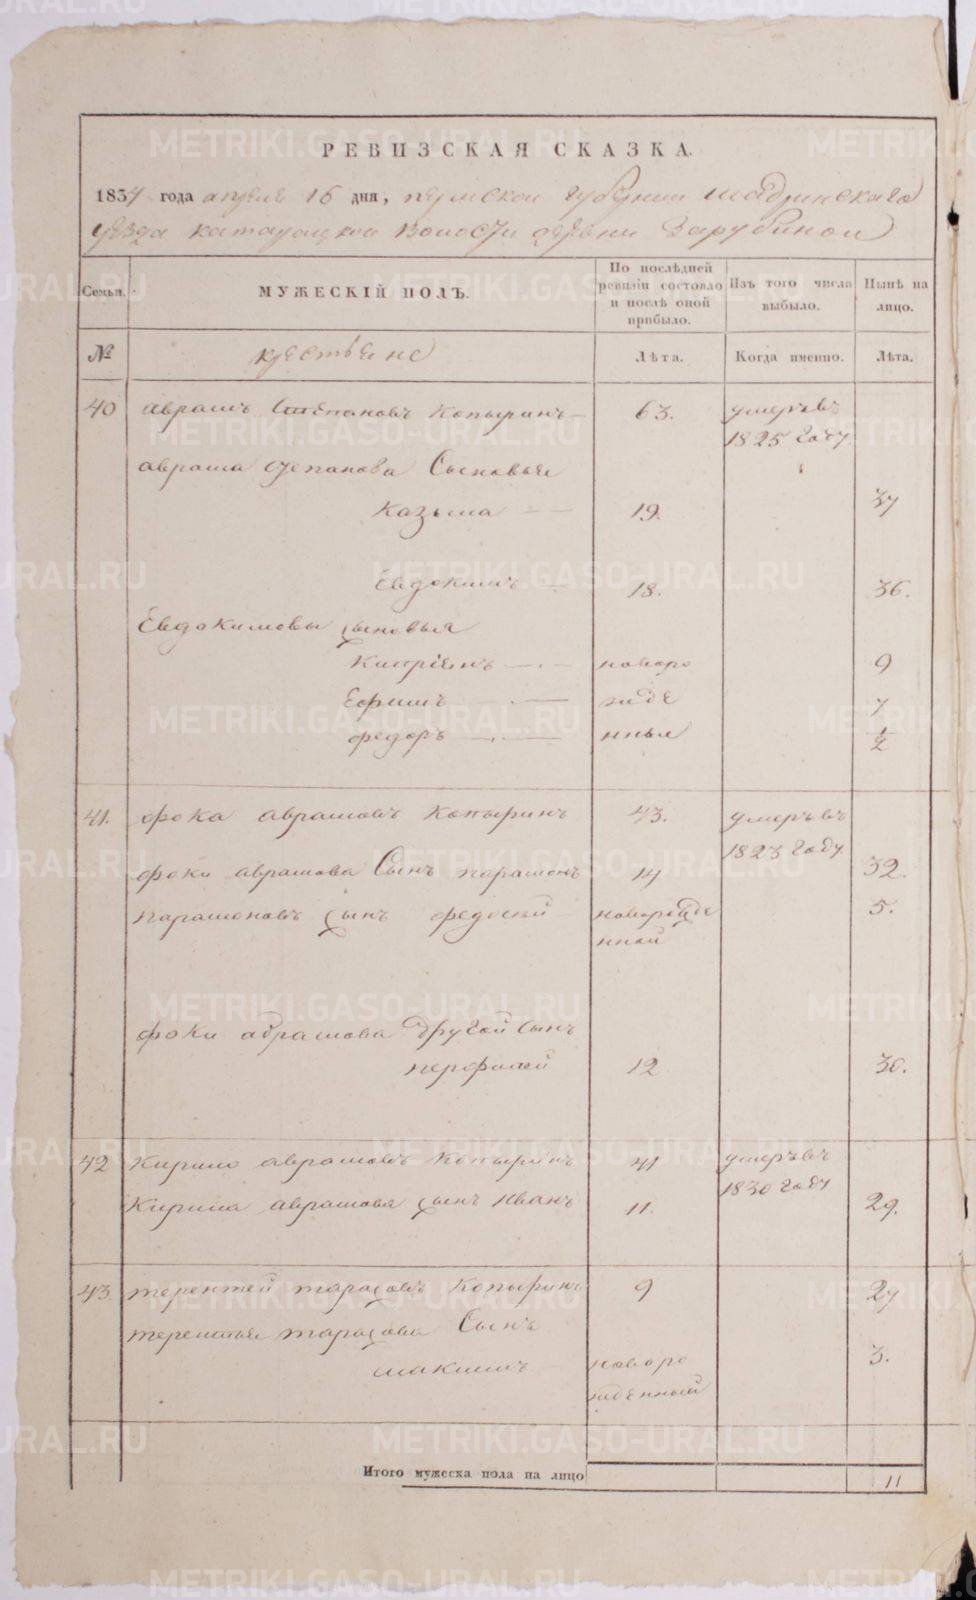 РЕВИЗСКАЯ СКАЗКА.
1834 года апреля 16 дня, пермской губернии Шадринскаго
уезда катайской волости деревни Зарубиной
Семьи. МУЖЕСКІЙ ПОЛЪ. По послѣдней ревизіи состояло и послѣ оной прибыло. Изъ того числа выбыло. Нынѣ на лицо.
№ крестьяне Лѣта. Когда именно. Лѣта.
40 аврамъ Степановъ Копыринъ 63. умеръ въ
1825 году
аврама степанова Сыновья
Казьма 19. 37
Евдокимъ 18. 36.
Евдокимовы сыновья
Кипріянъ новоро 9
Ефимъ жде 7
федоръ нныя 1/2
41. фока аврамовъ Копыринъ 43. умеръ въ
1823 году
фоки аврамова Сынъ парамонъ 14 32.
парамоновъ сынъ федосей новорожде 5.
нной
фоки абрамова другой сынъ
перфилей 12 30.
42 Кирило аврамовъ Копыринъ 41 умеръ въ
1830 году
Кирила аврамова сынъ иванъ 11. 29.
43 терентей тарасовъ Копыринъ 9 27
терентья тарасова Сынъ
максимъ новоро 3.
жденный
Итого мужеска пола на лицо 11
METRIKI.GASO-URAL.RU